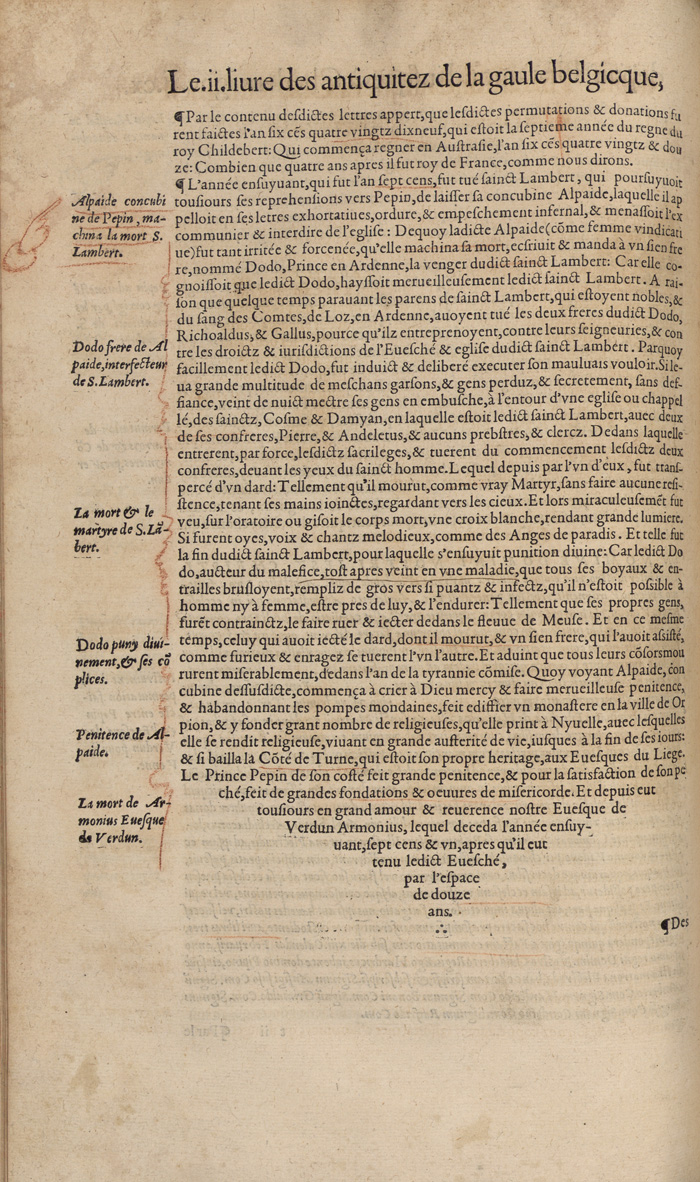 Le.ii.liure des antiquitez de la gaule belgicque,
¶Par le contenu desdictes lettres appert, que lesdictes permutations & donations fu
rent faictes l'an six cēs quatre vingtz dixneuf, qui estoit la septieme année du regne du
roy Childebert: Qui commença regner en Austrasie, l'an six cēs quatre vingtz & dou
ze: Combien que quatre ans apres il fut roy de France, comme nous dirons.
¶L'année ensuyuant, qui fut l'an sept cens, fut tué sainct Lambert, qui poursuyuoit
tousiours ses reprehensions vers Pepin, de laisser sa concubine Alpaide, laquelle il ap
pelloit en ses letres exhortatiues, ordure, & empeschement infernal, & menassoit l'ex
communier & interdire de l'eglise: Dequoy ladicte Alpaide (cōme femme vindicati
ue) fut tant irritée & forcenée, qu'elle machina sa mort, escriuit & manda à vn sien fre
re, nommé Dodo, Prince en Ardenne, la venger dudict sainct Lambert: Car elle co-
gnoissoit que ledict Dodo, hayssoit merueilleusement ledict sainct Lambert. A rai-
son que quelque temps parauant les parens de sainct Lambert, qui estoyent nobles, &
du sang des Comtes, de Loz, en Ardenne, auoyent tué les deux freres dudict Dodo,
Richoaldus, & Gallus, pource qu'ilz entreprenoyent, contre leurs seigneuries, & con
tre les droictz & iurisdictions de l'Euesché & eglise dudict sainct Lambert. Parquoy
facillement ledict Dodo, fut induict & deliberé executer son mauluais vouloir. Si le-
ua grande multitude de meschans garsons, & gens perduz, & secretement, sans def-
fiance, veint de nuict mectre ses gens en embusche, à l'entour d'vne eglise ou chappel
lé, des sainctz, Cosme & Damyan, en laquelle estoit ledict sainct Lambert, auec deux
de ses confreres, Pierre, & Andeletus, & aucuns prebstres, & clercz. Dedans laquelle
entrerent, par force, lesdictz sacrileges, & tuerent du commencement lesdictz deux
confreres, deuant les yeux du sainct homme. Lequel depuis par l'vn d'eux, fut trans-
percé d'vn dard: Tellement qu'il mourut, comme vray Martyr, sans faire aucune resi-
stence, tenant ses mains ioinctes, regardant vers les cieux. Et lors miraculeusemēt fut
veu, sur l'oratoire ou gisoit le corps mort, vne croix blanche, rendant grande lumiere.
Si furent oyes, voix & chantz melodieux, comme des Anges de paradis. Et telle fut
la fin dudict sainct Lambert, pour laquelle s'ensuyuit punition diuine: Car ledict Do
do, aucteur du malefice, tost apres veint en vne maladie, que tous ses boyaux & en-
trailles brusloyent, rempliz de gros vers si puantz & infectz, qu'il n'estoit possible à
homme ny à femme, estre pres de luy, & l'endurer: Tellement que ses propres gens,
furēt contrainctz, le faire ruer & iecter dedans le fleuue de Meuse. Et en ce mesme
temps, celuy qui auoit iecté le dard, dont il mourut, & vn sien frere, qui l'auoit assisté,
comme furieux & enragez se tuerent l'vn l'autre. Et aduint que tous leurs cōsorsmou
rurent miserablement, dedans l'an de la tyrannie cōmise. Quoy voyant Alpaide, con
cubine dessusdicte, commença à crier à Dieu mercy & faire merueilleuse penitence,
& habandonnant les pompes mondaines, feit ediffier vn monastere en la ville de Or
pion, & y fonder grant nombre de religieuses, qu'elle print à Nyuelle, auec lesquelles
elle se rendit religieuse, viuant en grande austerité de vie, iusques à la fin de ses iours:
& si bailla la Côté de Turne, qui estoit son propre heritage, aux Euesques du Liege.
Le Prince Pepin de son costé feit grande penitence, & pour la satisfaction de son pe
ché, feit de grandes fondations & oeuures de misericorde. Et depuis eut
tousiours en grand amour & reuerence nostre Euesque de
Verdun Armonius, lequel deceda l'année ensuy-
uant, sept cens & vn, apres qu'il eut
tenu ledict Euesché,
par l'espace
de douze
ans.
¶Des
Alpaide concubi
ne de Pepin, ma-
china la mort S.
Lambert.
Dodo frere de Al
paide, interfecteur
de S. Lambert.
La mort & le
martyre de S. Lā-
bert.
Dodo puny diui-
nement, & ses cō
plices.
Penitence de Al-
paide.
La mort de Ar-
monius Euesque
de Verdun.